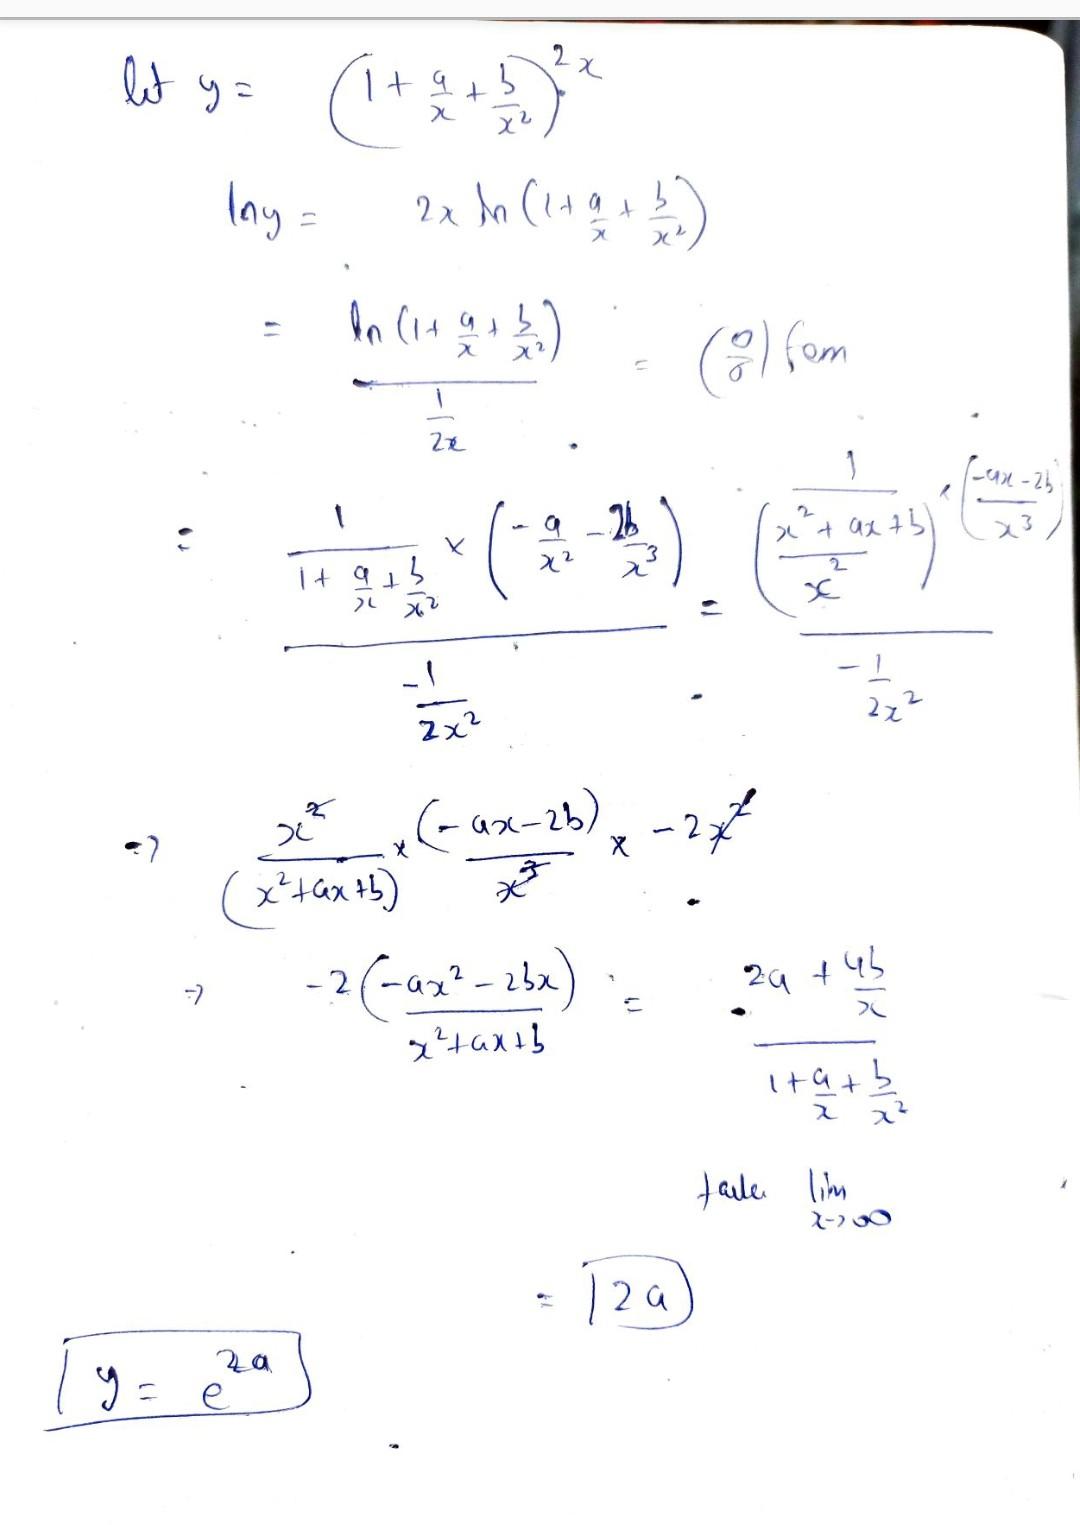 let y = (1 + a/x + b/x²)^2x
lny = 2x ln (1 + a/x + b/x²)
= ln (1 + a/x + b/x²) / (1/2x) = (0/0) form
= (1/(1 + a/x + b/x²) × (-a/x² - 2b/x³)) / (-1/2x²) = (1/((x² + ax + b)/x²) × ((-ax - 2b)/x³)) / (-1/2x²)
=> x²/(x² + ax + b) × (-ax - 2b)/x³ × -2x²
=> -2 (-ax² - 2bx)/(x² + ax + b) = (2a + 4b/x) / (1 + a/x + b/x²)
take lim x→∞
= 2a
y = e^2a